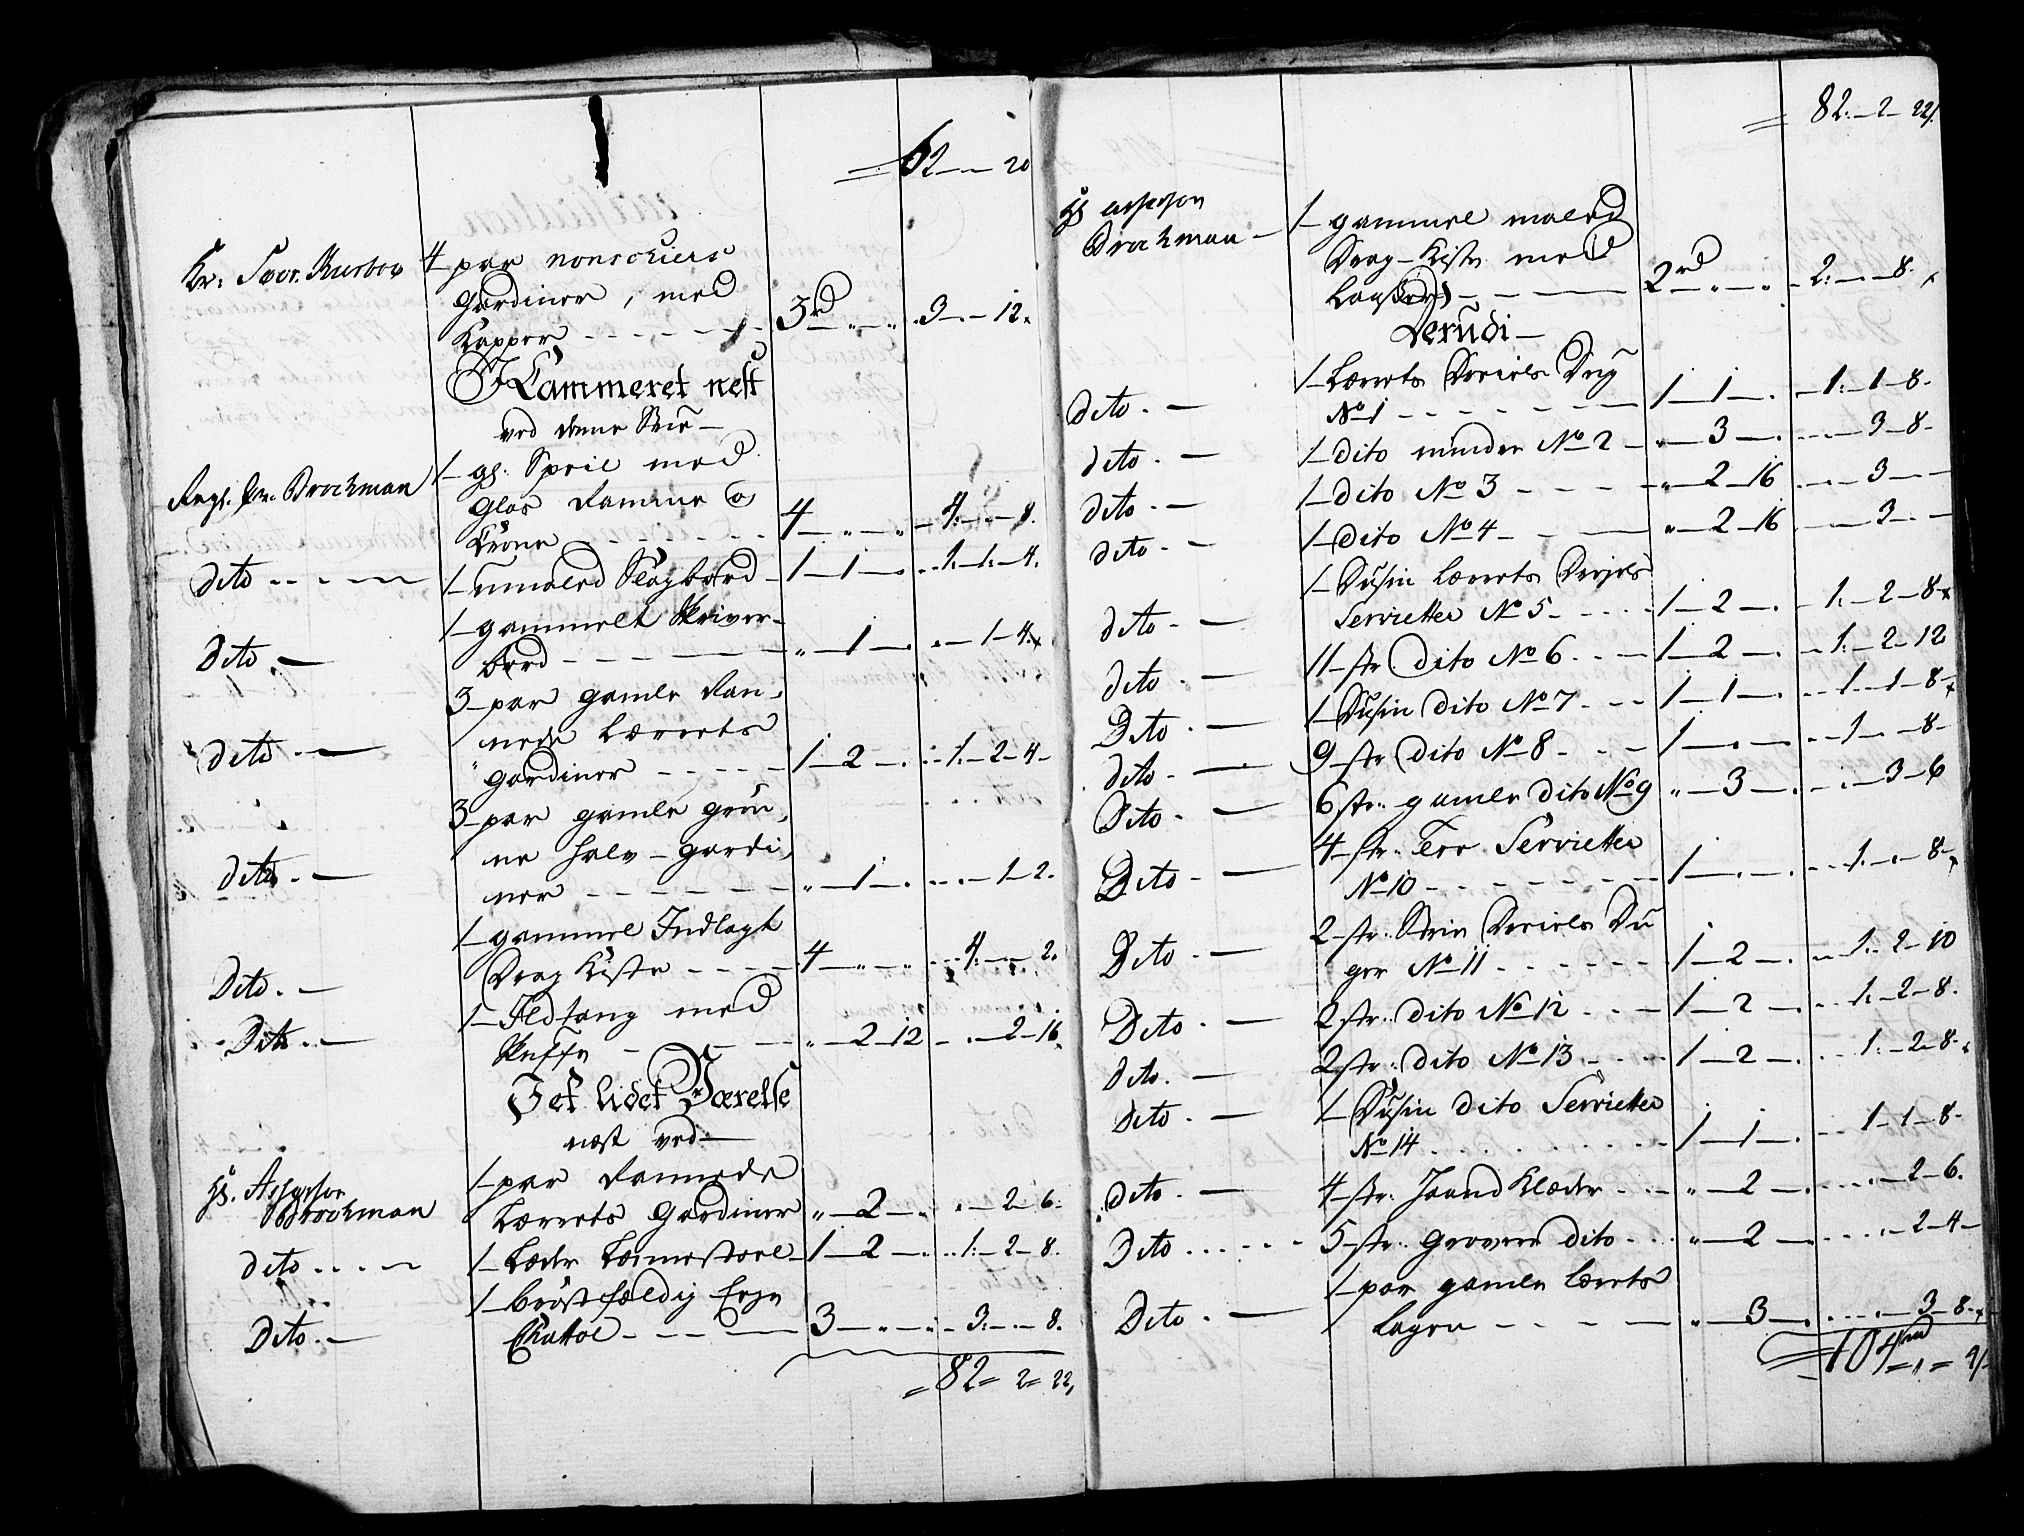 = 62 - - 20
Hr: Soor. Rustoy 4 par nonsotiers
Gardiner, med
Kapper - - - 3rd - " - " 3 - - 12.
I Cammeret nest
ved denne Side -
Regs. Qvr. Brochman 1 gl. Speil med
Glas Ramme o
Krone - - - 4 - " - " 4 - - 8.
dito - - - 1 umaled Slagbord - 1 - 1 - " 1 - 1 - 4.
Dito - 1 gammelt Skriver-
bord - - - " - 1 - " - 1 - 4.
3 par gamle Ran-
nede Lærrets
dito - Gardiner - - - 1 - 2 - " 1 - 2 - 4 -
3 par gamle grøn-
ne halv - Gardi-
dito - ner - - - " - 1 - " - 1 - 2.
1 gammel Indlagt
Dito - Drag Kiste - - - 4 - " - " 4 - - 2.
1 Ildtang med
Dito - Skuffe - - - " - 2 - 12 - 2 - 16
I et lidet Værelse
næst ved -
Hs. Assessor 1 par Rannede
Brochman Lærrets Gardiner " - 2 - " - 2 - 6.
dito - - - 1 Læder Lænnestoel - 1 - 2 - " 1 - 2 - 8.
1 brøstfældig Ege
Dito - Chattol - - - 3 - " - " 3 - - 8.
= 82 = 2 = 22,
= 82 - 2 - 22/.
Hs assessor 1 gammel maled
Brochman - Drag-Kiste med
Lagker - - 2rd - " - " 2 - - 8.
Derudi -
1 Lærrets Dreiels Dug
dito - No 1 - - - 1 - 1 - 1 - 1 - 8.
dito - 1 dito minder No 2 - " - 3 - - 3 - 8 -
dito - 1 dito No 3 - - - " - 2 - 16 - 3 - -
dito - 1 dito No 4 - - - " - 2 - 16 - 3 - -
1 Dusin Lærrets Dreiels
dito - Servietter No 5 - - 1 - 2 - 1 - 2 - 8
dito - 11 str dito No 6 - - 1 - 2 - 1 - 2 - 12
Dito - 1 Dusin dito No 7 - - 1 - 1 - 1 - 1 - 8
dito - 9 str dito No 8 - - 1 - - 1 - - 8 -
Dito - 6 str: gamle dito No 9 " - 3 - - 3 - 6
4 str: Servietter
Dito - No 10 - - - 1 - - 1 - - 8
2 str: Dreiels Du
Dito - ger No 11 - - - 1 - 2 - 1 - 2 - 10
Dito - 2 str: dito No 12 - - 1 - 2 - 1 - 2 - 8.
dito - 2 str: dito No 13 - - 1 - 2 - 1 - 2 - 8
1 Dusin dito Servietter
Dito - No 14 - - - 1 - 1 - 1 - 1 - 8 -
dito - 4 str: Haand Klæder - - " - 2 - - 2 - 6.
Dito - - - 5 str: grovere dito - - " - 2 - - 2 - 4 -
1 par gamle Lærrets
Dito - Lagen - - - " - 3 - - 3 - 8
= 104rd = 1 = 4/